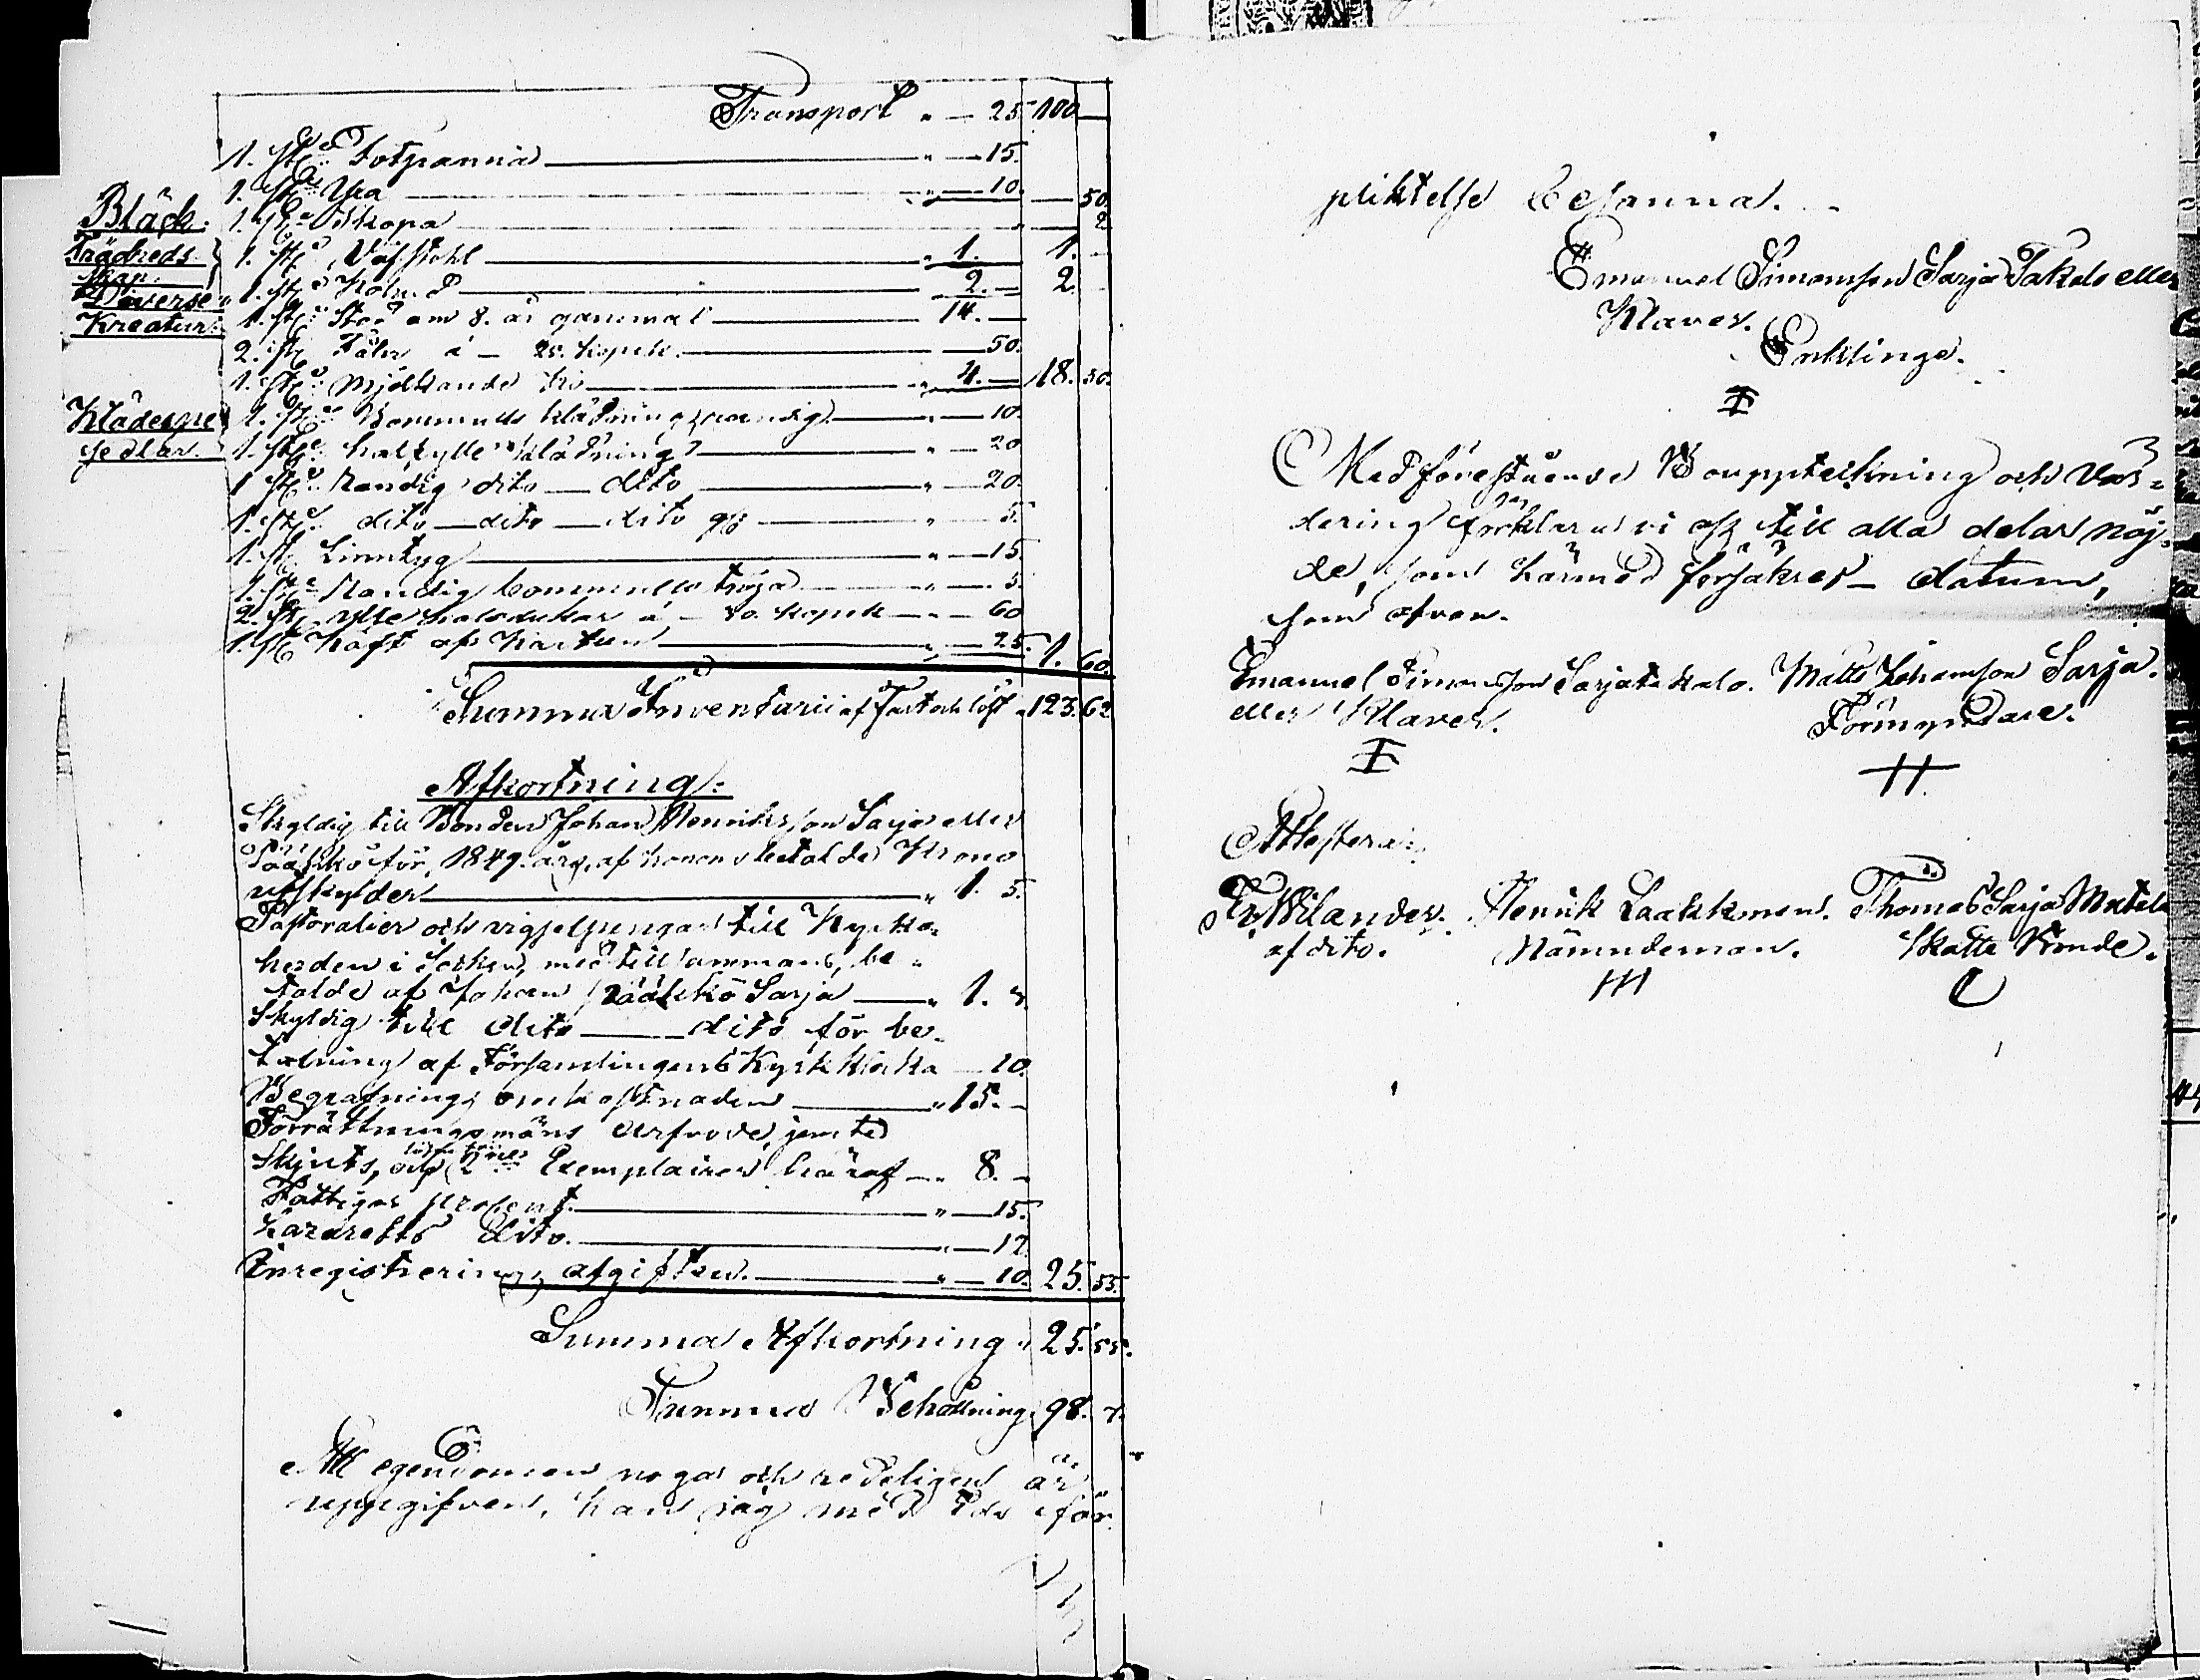 Transport " — 25. 100 —
1. st. Fotpanna " — 15.
1. st. Yxa " — 10. — 50.
Bläck. 1. st. Skopa — 2.
Trädredskap. 1. st. Väfstohl " 1. 1. —
Diverse 1. st. 2. — 2.
Kreatur. 1. st. Sto om 8. år gammal 14. —
2. st. Fåhr á — 25. kopek. — 50.
1. st. Mjölkande ko " 4. — 18. 50.
Klädespersedlar. 1. st. Bommulls klädning randig " — 10.
1. st. halfylle klädning " — 20
1 st. Randig dito — dito " — 20.
1. st. dito — dito — dito " — 5.
1. st. Linntyg " — 15.
1. st. Randig bommulls tröja " — 5
2. st. ylle halsdukar á — 30. kopek " — 60
1. st. Köft af Kartun " — 25. 1. 60.
Summa Inventarii af Fast och löst " 123. 62
Afkortning:
Skyldig till Bonden Johan Henriksson Sarja eller
Pääskö för 1849. års, af honom betalde Krono
utskylder " 1. 5.
Pastoralier och vigselpengar till Kyrko-
herden i Socken, med tillsammans, be-
talde af Johan Pääskö Sarja " 1. 3.
Skyldig till dito — dito för be-
talning af Församlingens Kyrk klocka — 10.
Begrafnings omkostnaden " 15. —
Förrättningsmäns arfvode, jemte
Skjuts, och 2 Exemplairer häraf " 8. —
Fattiges procent. " — 15.
Lazaretts dito. " — 12
Inregistrerings afgiften. " — 10. 25. 55.
Summa Afkortning " 25. 55.
Summa Behållning 98. 7.
Att egendomen noga och redeligen är
uppgifven, kan jag med Ed för
pliktelse besanna.
Emanuel Simonsson Sarja Takalo eller
Klaver.
Enkling.
I
Med föreståuende Bouppteckning och vär-
dering förklara vi oss till alla delar nöj-
de, som härmed försäkras — datum,
som ofvan.
Emanuel Simonsson Sarjatakalo. Matts Johansson Sarja.
eller Klaver. Förmyndare.
I H.
Attestera:
Fr. Wilander. Henrik Laakkonen. Thomas Sarja Matala
af dito. Nämndeman. Skatte Bonde.